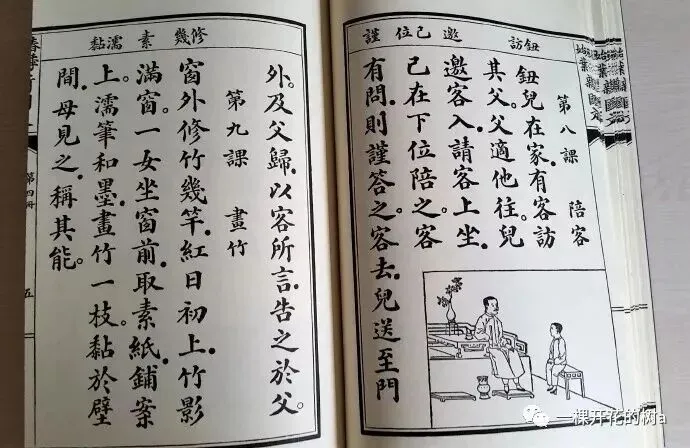 鈕訪 邀 己位 謹
第八課 陪客
鈕兒在家．有客訪
其父。父適他往。兒
邀客入．請客上坐．
己在下位陪之。客
有問．則謹答之。客去．兒送至門
修幾 素 濡黏
外。及父歸．以客所言．告之於父。
第九課 畫竹
窗外修竹幾竿．紅日初上．竹影
滿窗。一女坐窗前．取素紙鋪案
上。濡筆和墨．畫竹一枝。黏於壁
間．母見之．稱其能。
第四冊
五
一棵开花的树a